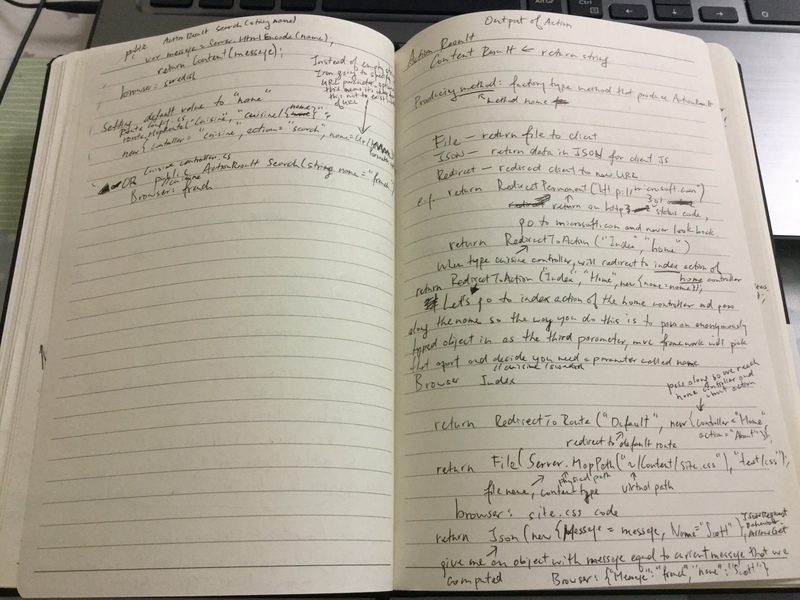 public ActionResult Search(string name)
var message = Server.HtmlEncode(name);
return Content(message);
browser: swedish
Instead of empty string
I'm going to specify
URL parameter optional
this name is
this not to exist
of URL
Setting default value to "home"
Route config.cs
route.MapRoute("Cuisine", "cuisine/{name}",
new { controller = "cuisine", action = "search", name = Url
OR Cuisine controller.cs
public ActionResult Search(string name = "french")
/cuisine
Browser: french
Output of Action
Action Result
Content Result ← return string
Producing method: factory type method that produce ActionResult
method name
File – return file to client
Json – return data in JSON for client JS
Redirect – redirect client to new URL
e.g. return RedirectPermanent("http://microsoft.com")
return an http 301 status code,
go to microsoft.com and never look back
return RedirectToAction("Index", "home")
when type cuisine controller, will redirect to index action of
home controller
return RedirectToAction("Index", "Home", new {name=name});
Let's go to index action of the home controller and pass
along the name so the way you do this is to pass an anonymously
typed object in as the third parameter, mvc framework will pick
that apart and decide you need a parameter called name
//cuisine/swedish
Browser Index
pass along so we reach
home controller and
about action
return RedirectToRoute("Default", new {controller="Home",
action="About"});
redirect to default route
return File(Server.MapPath("~/Content/Site.css"), "text/css");
physical path
file name, content type virtual path
browser: site.css code
return Json(new {Message = message, Name="Scott"}, JsonRequest
Behavior.
AllowGet
give me an object with message equal to current message that we
computed Browser: {"Message":"french","name":"Scott"}